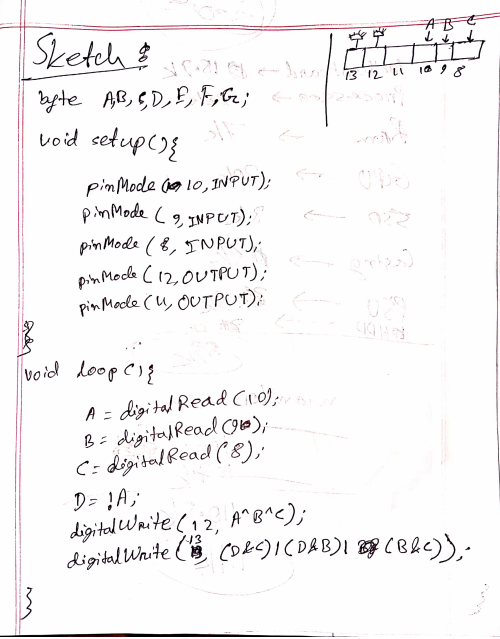 Sketch :
A B C
13 12 11 10 9 8
byte A,B,C,D,E,F,G;
void setup(){
pinMode(10,INPUT);
pinMode(9,INPUT);
pinMode(8, INPUT);
pinMode(12,OUTPUT);
pinMode(11, OUTPUT);
}
void loop(){
A = digitalRead(10);
B = digitalRead(9);
C = digitalRead(8);
D = !A;
digitalWrite(12, A^B^C);
digitalWrite(13, (D&C)|(D&B)|(B&C));
}